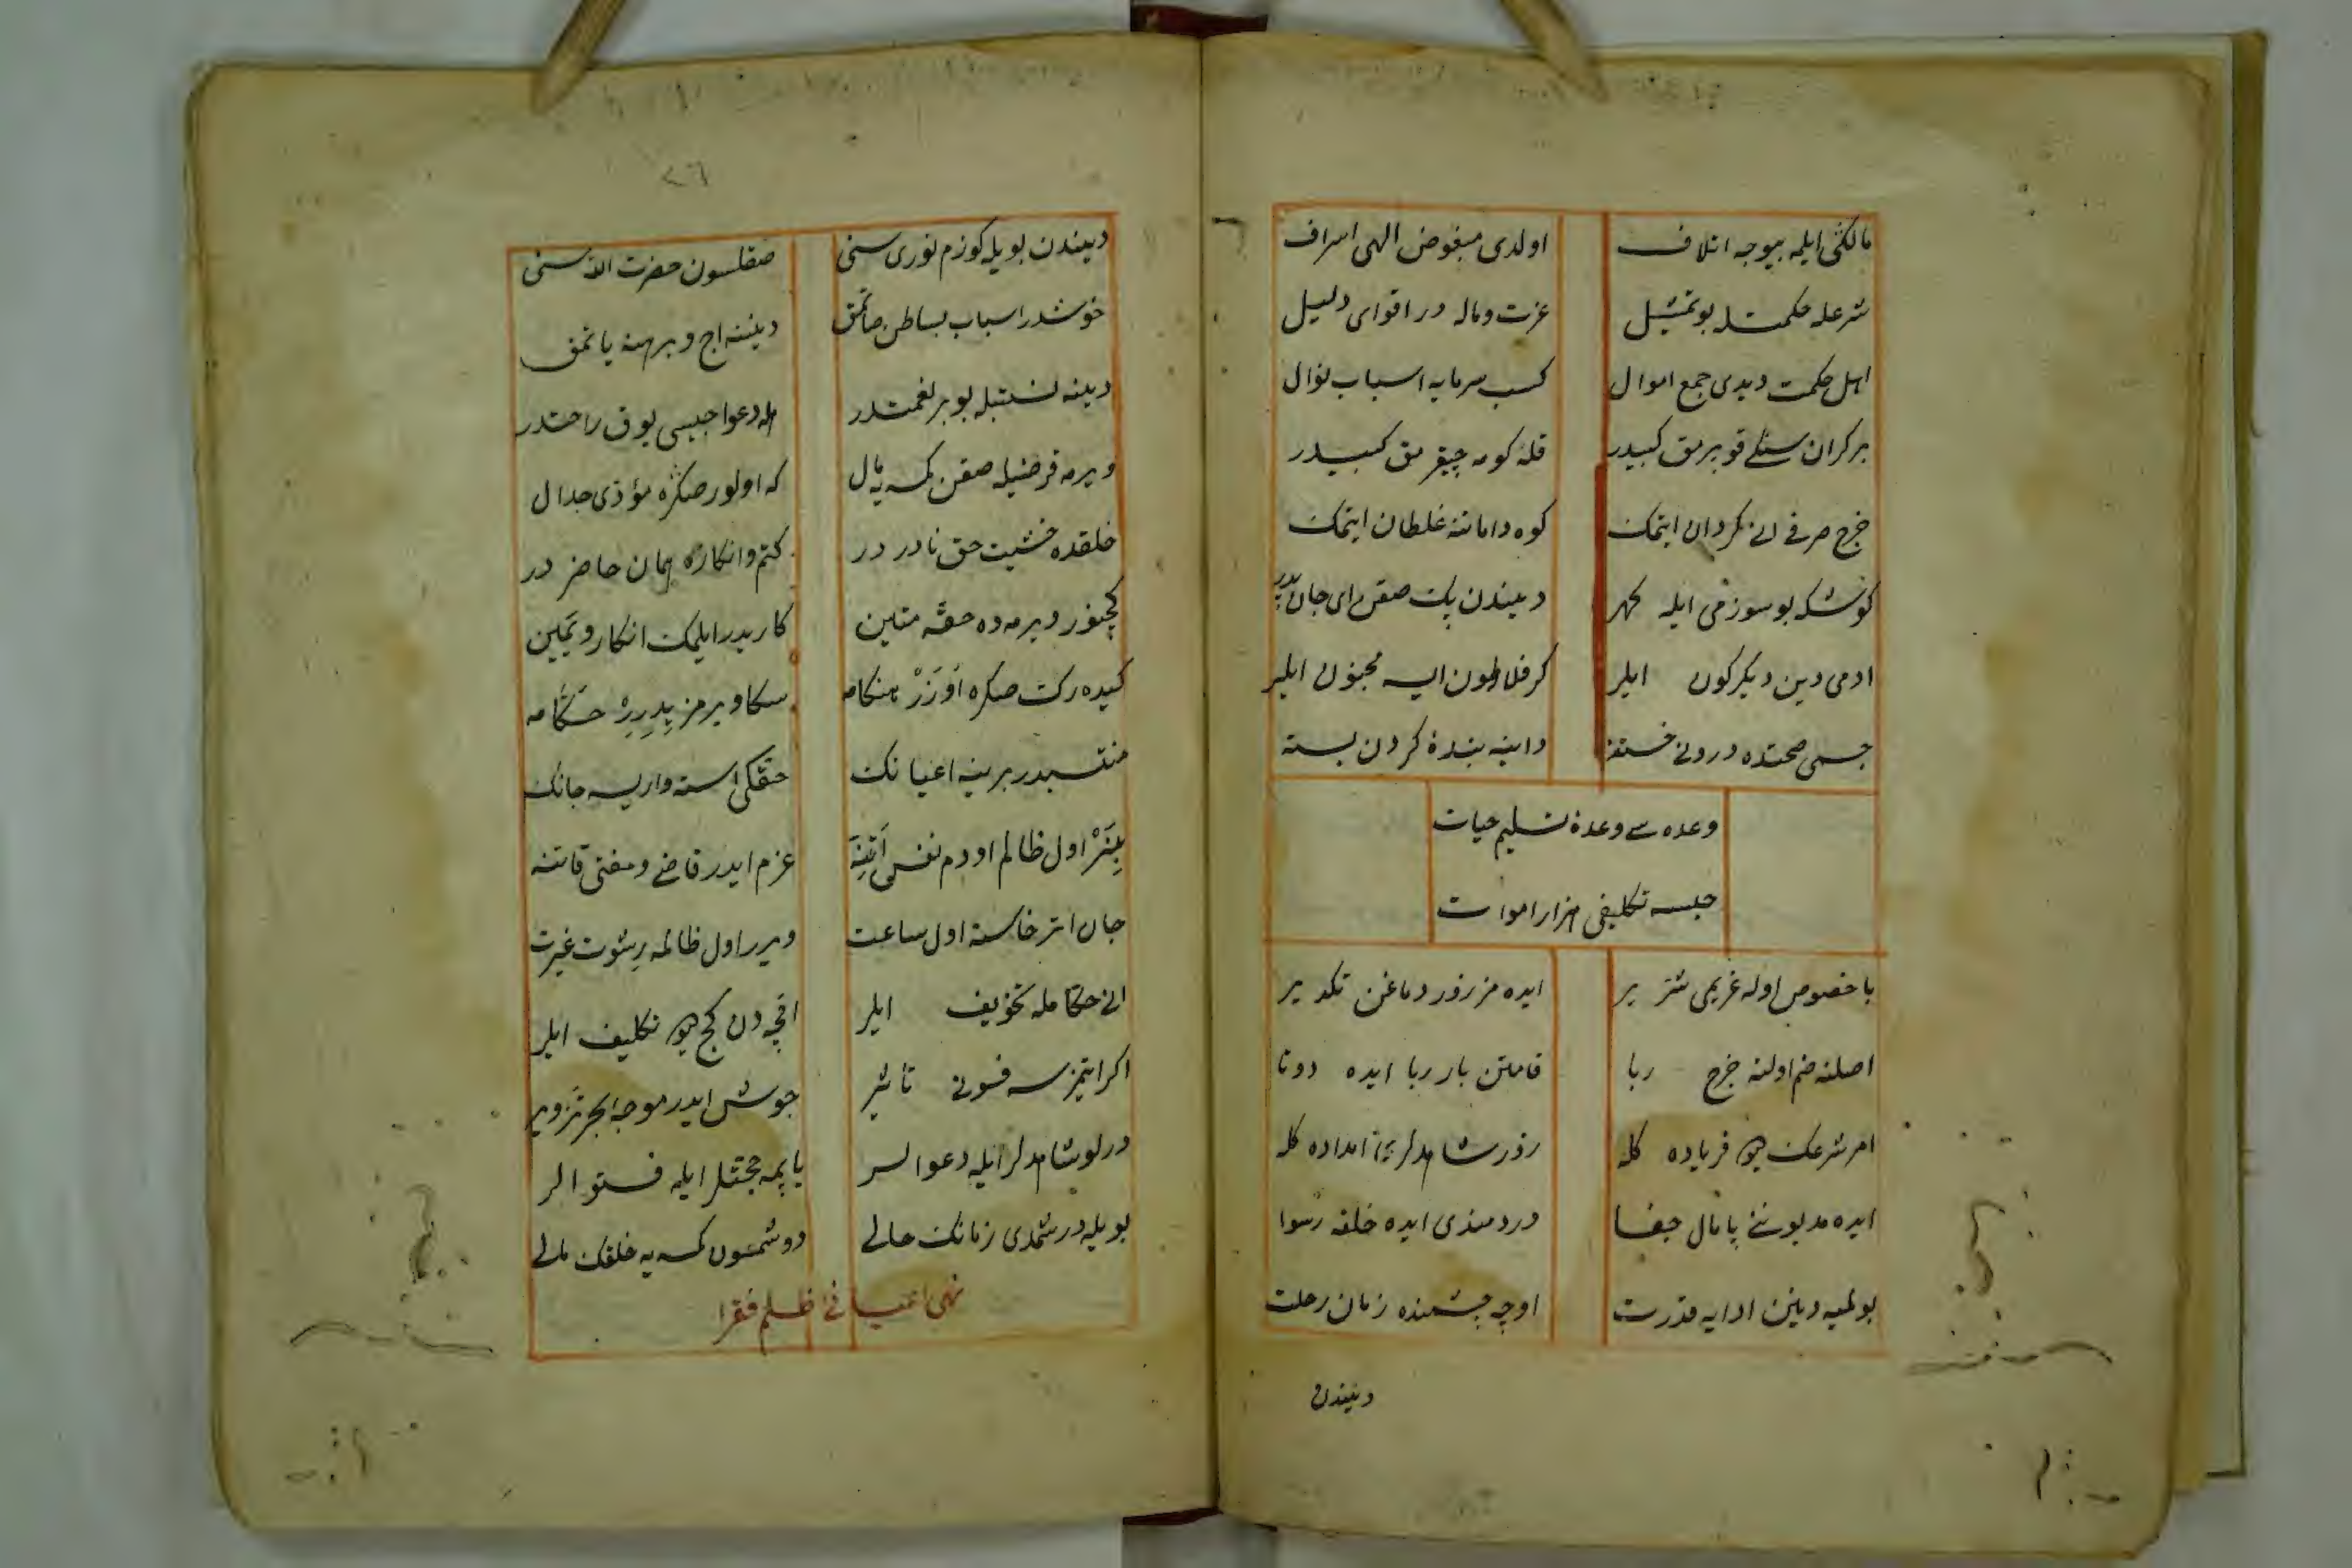 مالكنی ایلمه بیوجه اتلاف اولدی مبغوض الهی اسراف
شرعله حكمتله بو تمثیل عزت و ماله در اقوای دلیل
اهل حكمت دیدی جمع اموال كسب سرمایه اسباب نوال
بر كران سنكی قوپرمق كبیدر قلهٔ كوهه چیقرمق كبیدر
خرج صرفی انی كردان ایتمك كوه دامانه غلطان ایتمك
كوش كه بو سوزمی ایله كهر دیندن پك صقن ای جان پدر
ادمی دین دیكركون ایلر كر فلاطون ایسه مجنون ایلر
جسمی صحتده درونی خسته داینه بندهٔ كردن بسته
وعده سی وعدهٔ تسلیم حیات
حبسه تكلیفی مزار اموات
با خصوص اوله غریمی شریر ایده مزرور دماغن تكدیر
اصلنه ضم اولنه خرج ربا قامتن بار ربا ایده دوتا
امر شرعك چو فریاده كله زور شاهدلری امداده كله
ایده مدیوننی پامال جفا دردمندی ایده خلقه رسوا
بولمیه دینن ادایه قدرت اوچه چشمنده زمان رحلت
دیندن
٢٦
دیندن بویله كوزم نوری سنی صقلسون حضرت الله سنی
خوشدر اسباب بساطن صاتمق دیننه اج و برهنه یاتمق
دینه نسبتله بو بر نعمتدر اله دعواجیسی یوق راحتدر
ویرمه قرضیله صقن كمسه یه مال كه اولور صكره مؤذی جدال
خلقده خشیت حق نادر در كتم وانكاره همان حاضر در
كچنور ویرمه ده حقه متین كاریدر ایلمك انكار و یمین
كیده رك صكره اوزر هنكامه سكا ویرمز یدیرر حكامه
منتسبدر برینه اعیانك حقكی استه واریسه جانك
بینر اول ظالم اودم نفس اتینه عزم ایدر قاضی و مفتی قاتنه
جان اتر خاسته اول ساعت ویرر اول ظالمه رشوت غیرت
انی حكامله تخویف ایلر اقچه دن كچ دیو تكلیف ایلر
اكر ایتمزسه فسونی تاثیر جوش ایدر موجهٔ بحر تزویر
درلو شاهدلر ایله دعوالر یاپمه حجتلر ایله فتوالر
بویله در شمدی زمانك حالی دوشمسون كمسه یه خلقك مالی
نهی اعیا نی ظلم فقرا